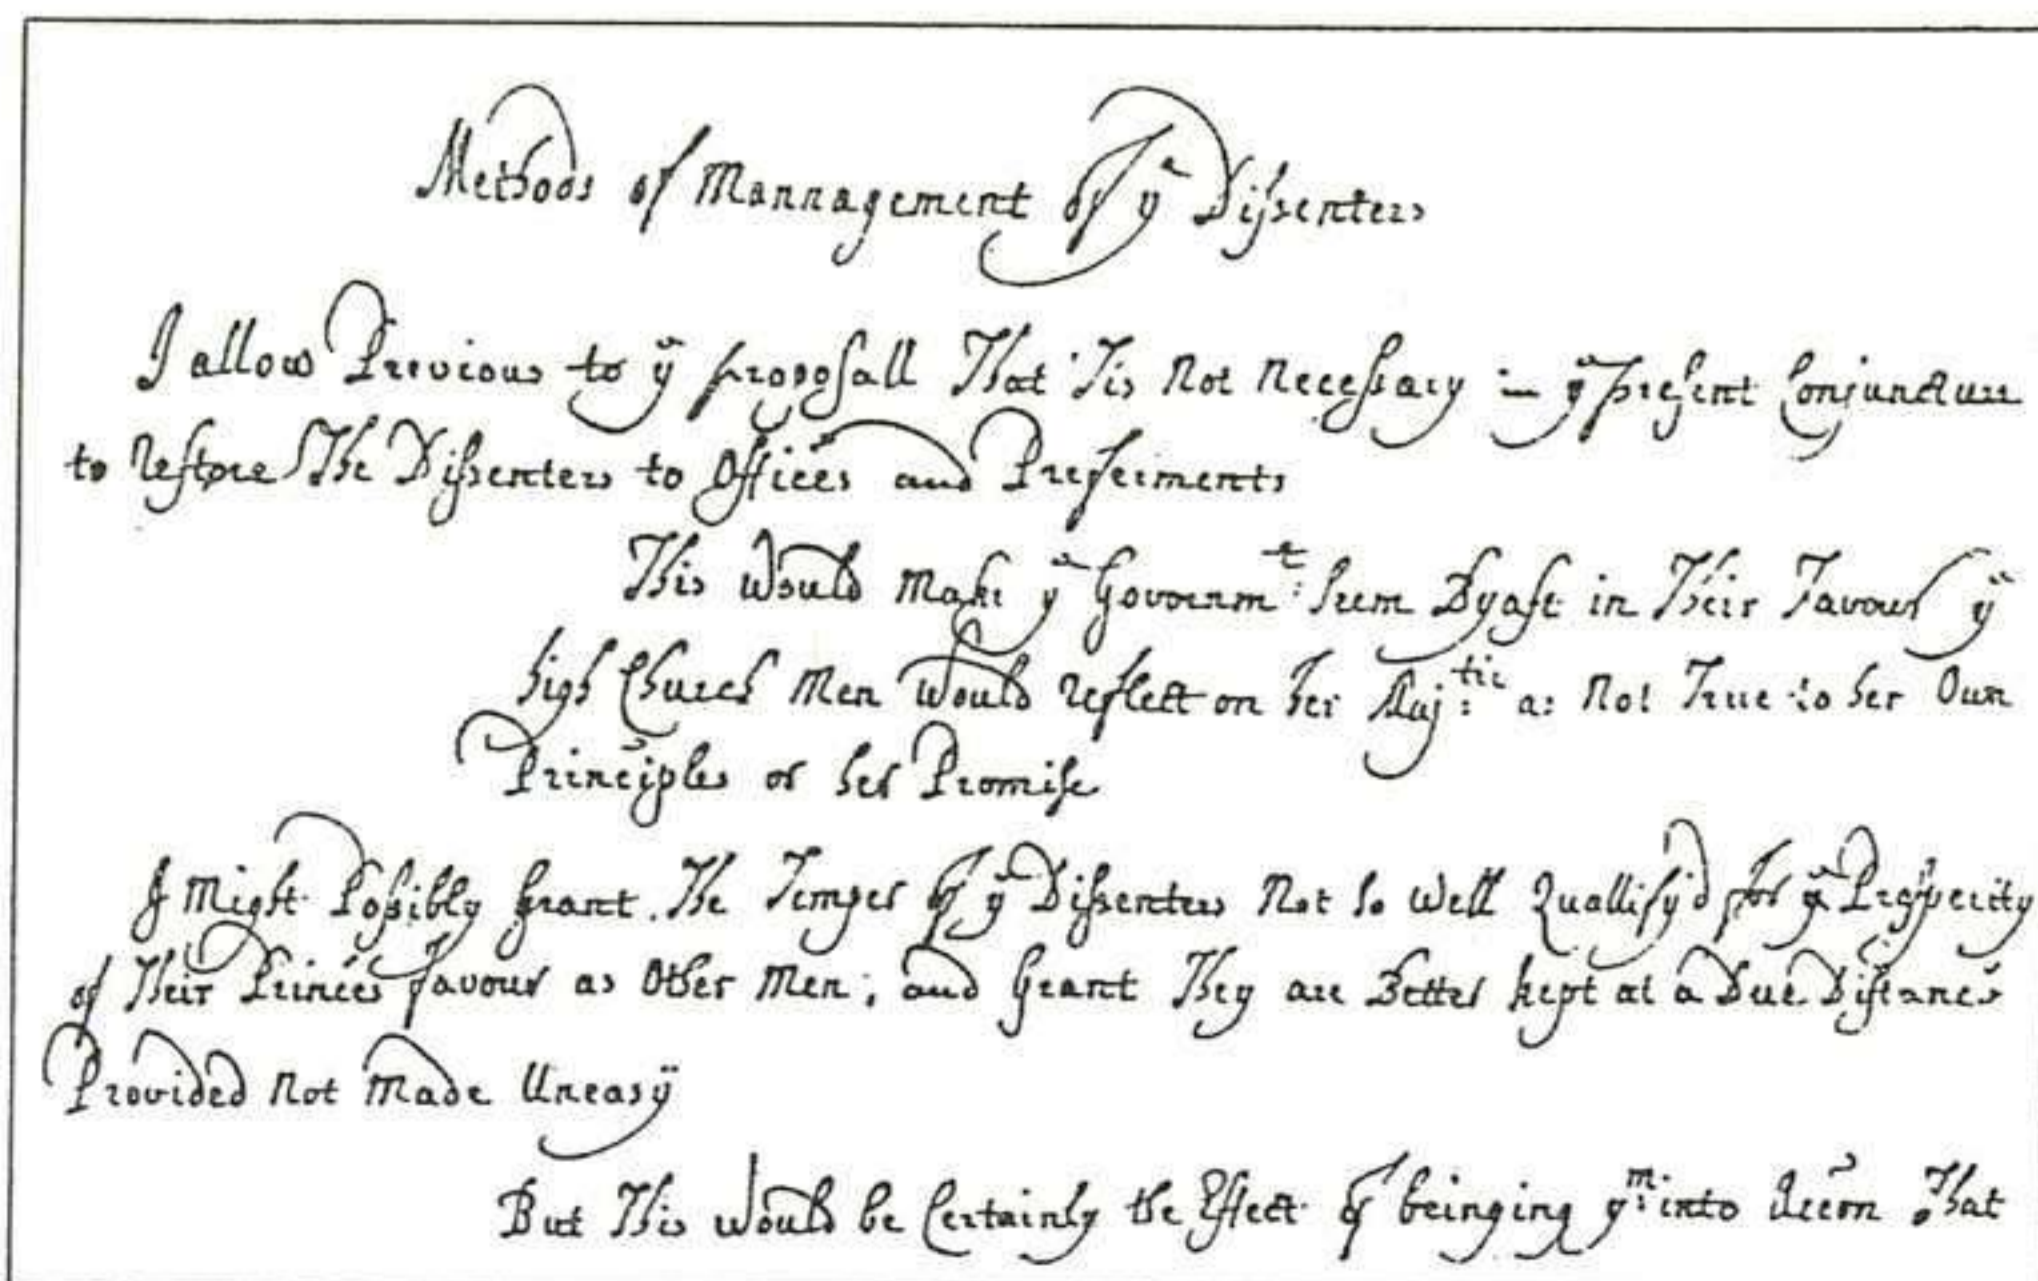 Methods of Mannagement of yᵉ Dissenters
I allow Previous to yᵉ proposall That 'Tis Not Necessary in yᵉ present Conjuncture
to restore The Dissenters to Offices and Preferments
This would make yᵉ Governmᵗ: seem Byast in Their Favour yᵉ
high Church Men would reflect on her Majᵗⁱᵉ: as Not True to her Own
Principles or her Promise
I Might Possibly Grant. The Temper of yᵉ Dissenters Not so well Quallify'd for yᵉ Prosperity
of Their Princes favour as Other Men; and Grant They are Better kept at a Due Distance
Provided Not Made Uneasy
But This would be Certainly the Effect of bringing yᵐ: into That